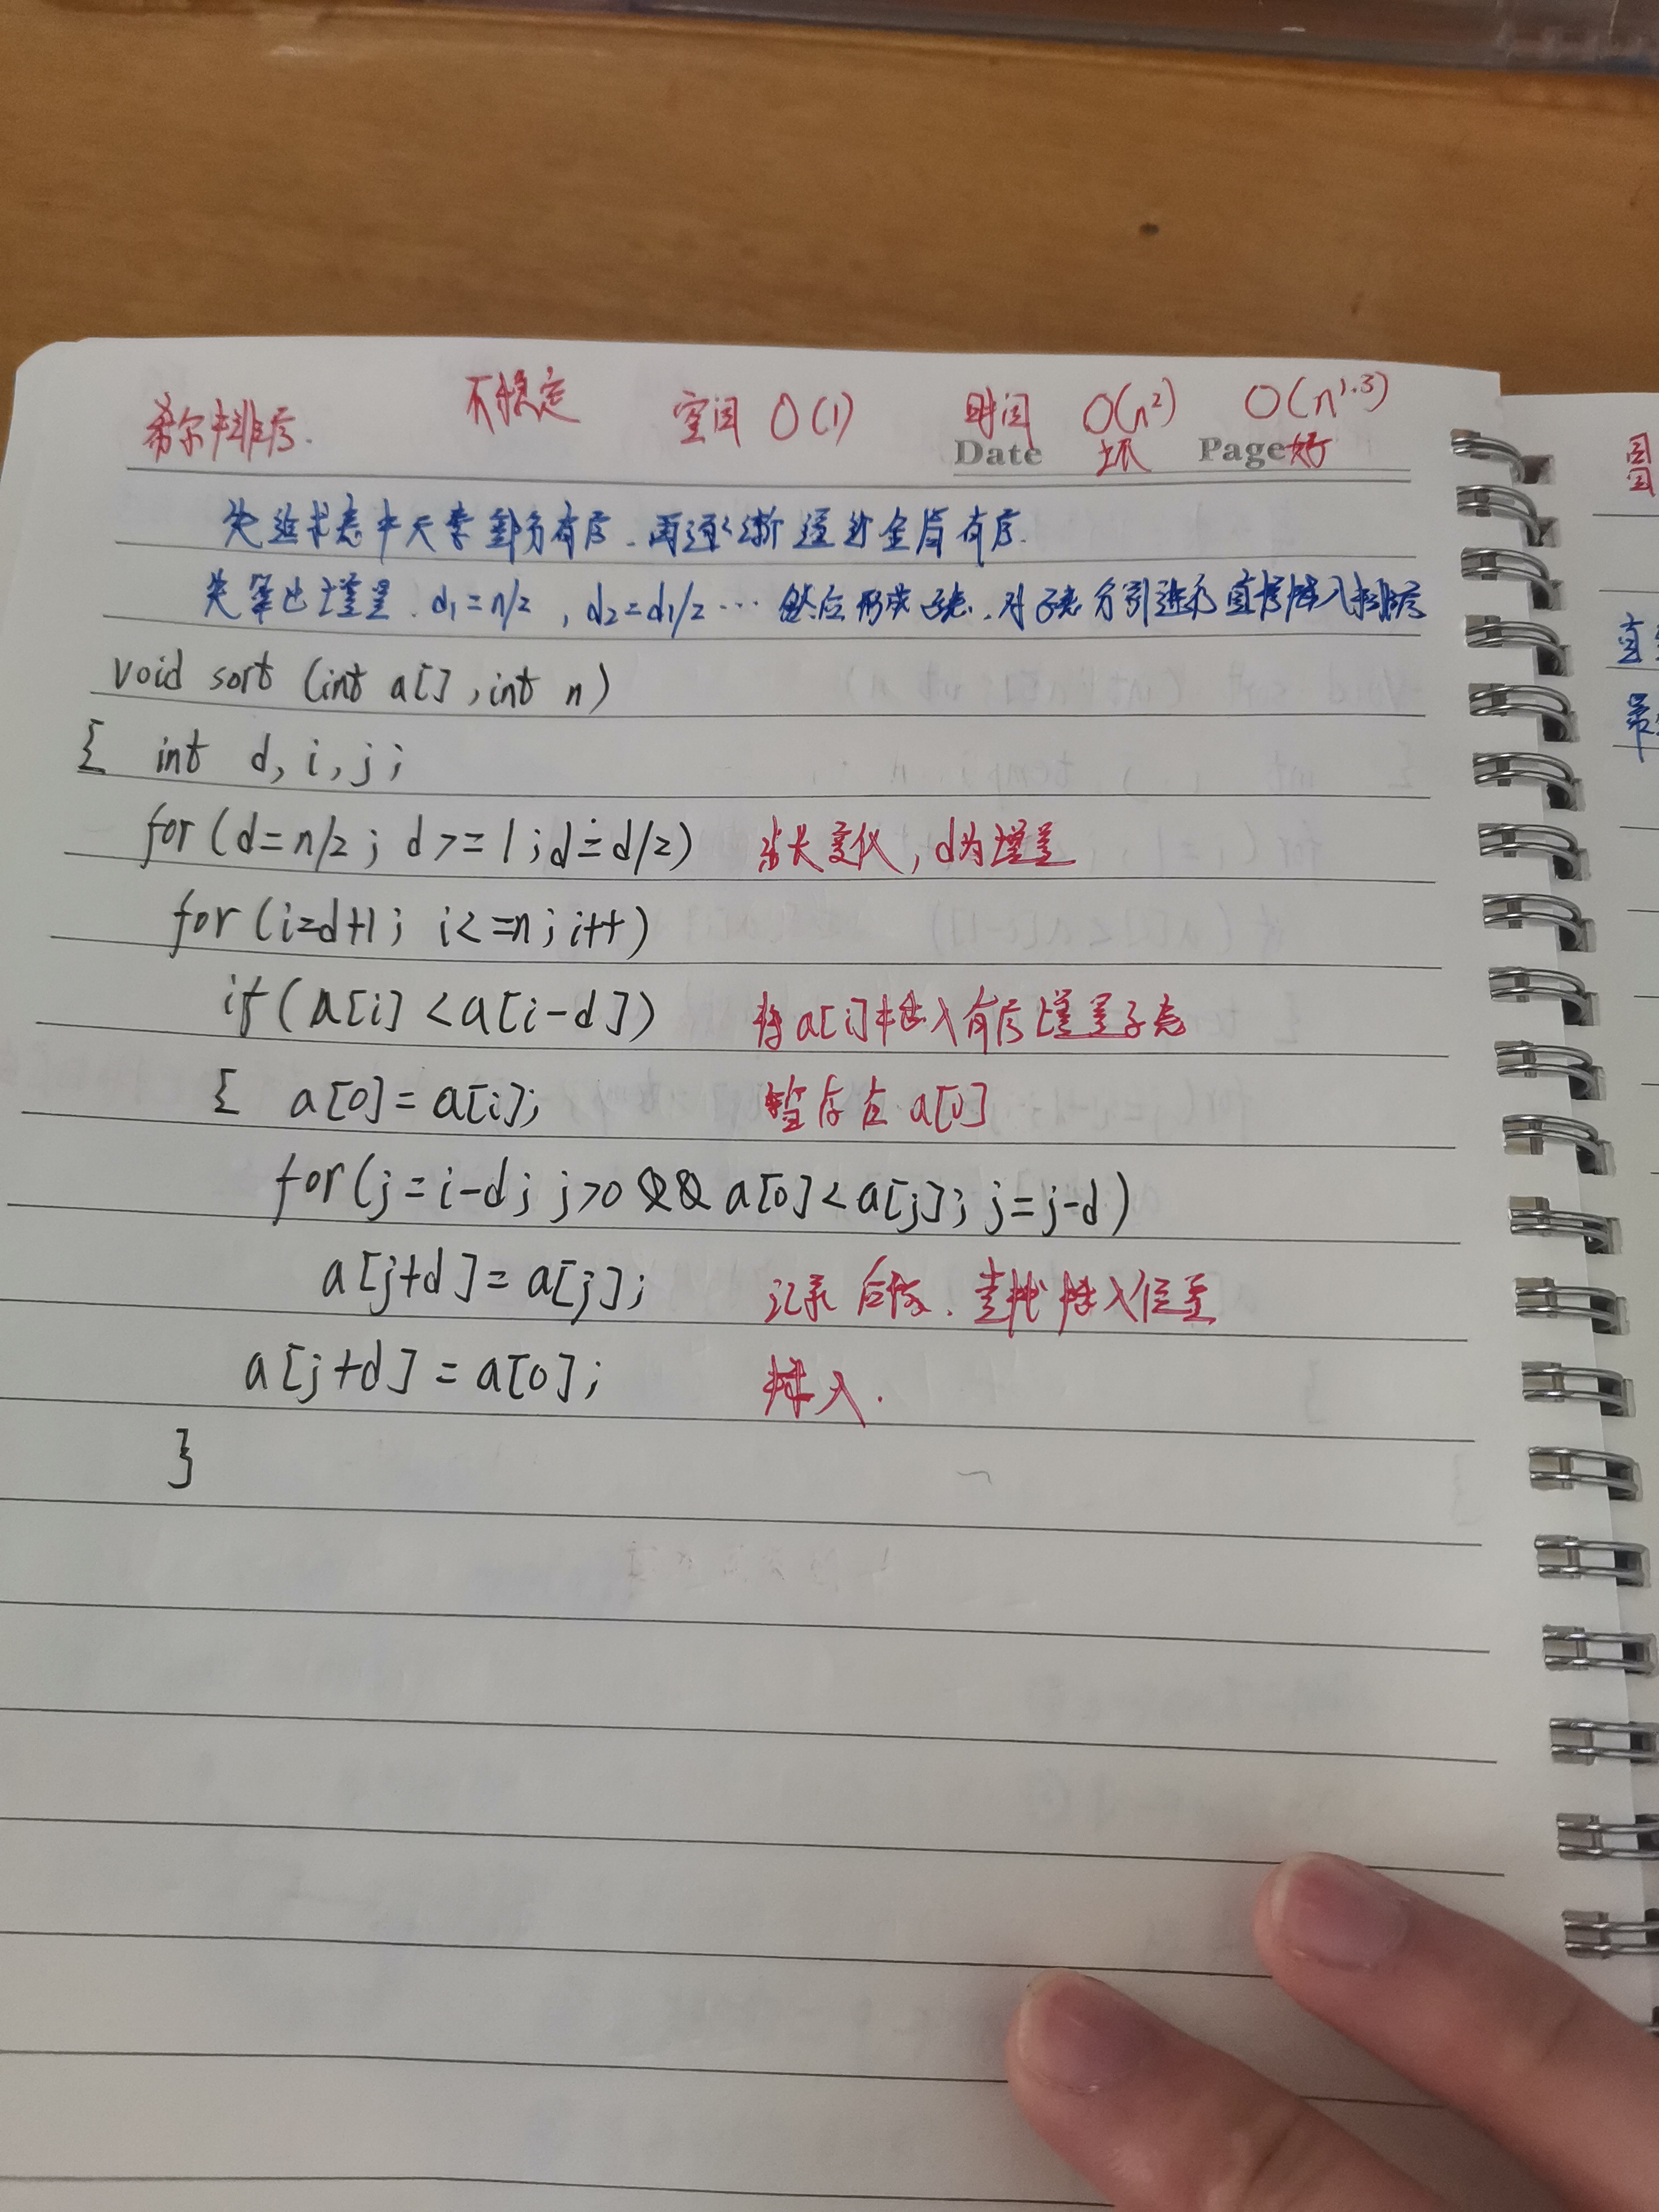 希尔排序. 不稳定 空间 O(1) 时间 O(n²) O(n^1.3)
Date 坏 Page 好
先追求表中元素部分有序.再逐渐逼近全局有序.
先算出增量.d₁=n/2,d₂=d₁/2…然后形成子表.对子表分别进行直接插入排序
void sort (int a[],int n)
{ int d,i,j;
for(d=n/2; d>=1;d=d/2) 步长变化,d为增量
for(i=d+1; i<=n;i++)
if(a[i]<a[i-d]) 将a[i]插入有序增量子表
{ a[0]=a[i]; 暂存在a[0]
for(j=i-d; j>0&&a[0]<a[j]; j=j-d)
a[j+d]=a[j]; 记录后移.查找插入位置
a[j+d]=a[0]; 插入.
}
直